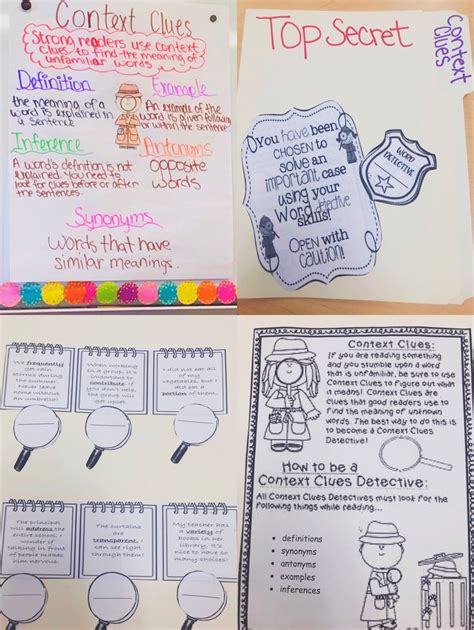 Context Clues
Strong readers use context
clues to find the meaning of
unfamiliar words
Definition
the meaning of a
word is explained in
a sentence
Example
An example of the
word is given following
or within the sentence
Inference
A word's definition is not
explained. You need to
look for clues before or after
the sentences.
Antonyms
opposite
words
Synonyms
Words that have
similar meanings.
Top Secret
Context
Clues
You have been
CHOSEN to
solve an
important case
using your
Word detective
skills!
Open with
caution!
WORD
DETECTIVE
We frequently
get rain
storms during
the summer.
Never leave
home without
an umbrella!
When working
in a group, it's
important to
contribute. If
you don't help
the group will
get upset.
I did not eat
all of my
vegetables, but I
did eat a
portion of them.
The principal
will address the
entire school. I
wonder if
talking in front
of people makes
him nervous.
The curtains
are
transparent. I can
see right through
them!
My teacher has
a variety of
books in her
library. It's
nice to have so
many choices!
Context Clues:
If you are reading something
and you stumble upon a word
that is unfamiliar, be sure to use
Context Clues to figure out what
it means! Context Clues are
clues that good readers use to
find the meaning of unknown
words. The best way to do this is
to become a Context Clues
Detective!
How to be a
Context Clues Detective:
All Context Clues Detectives must look for the
following things while reading...
• definitions
• synonyms
• antonyms
• examples
• inferences